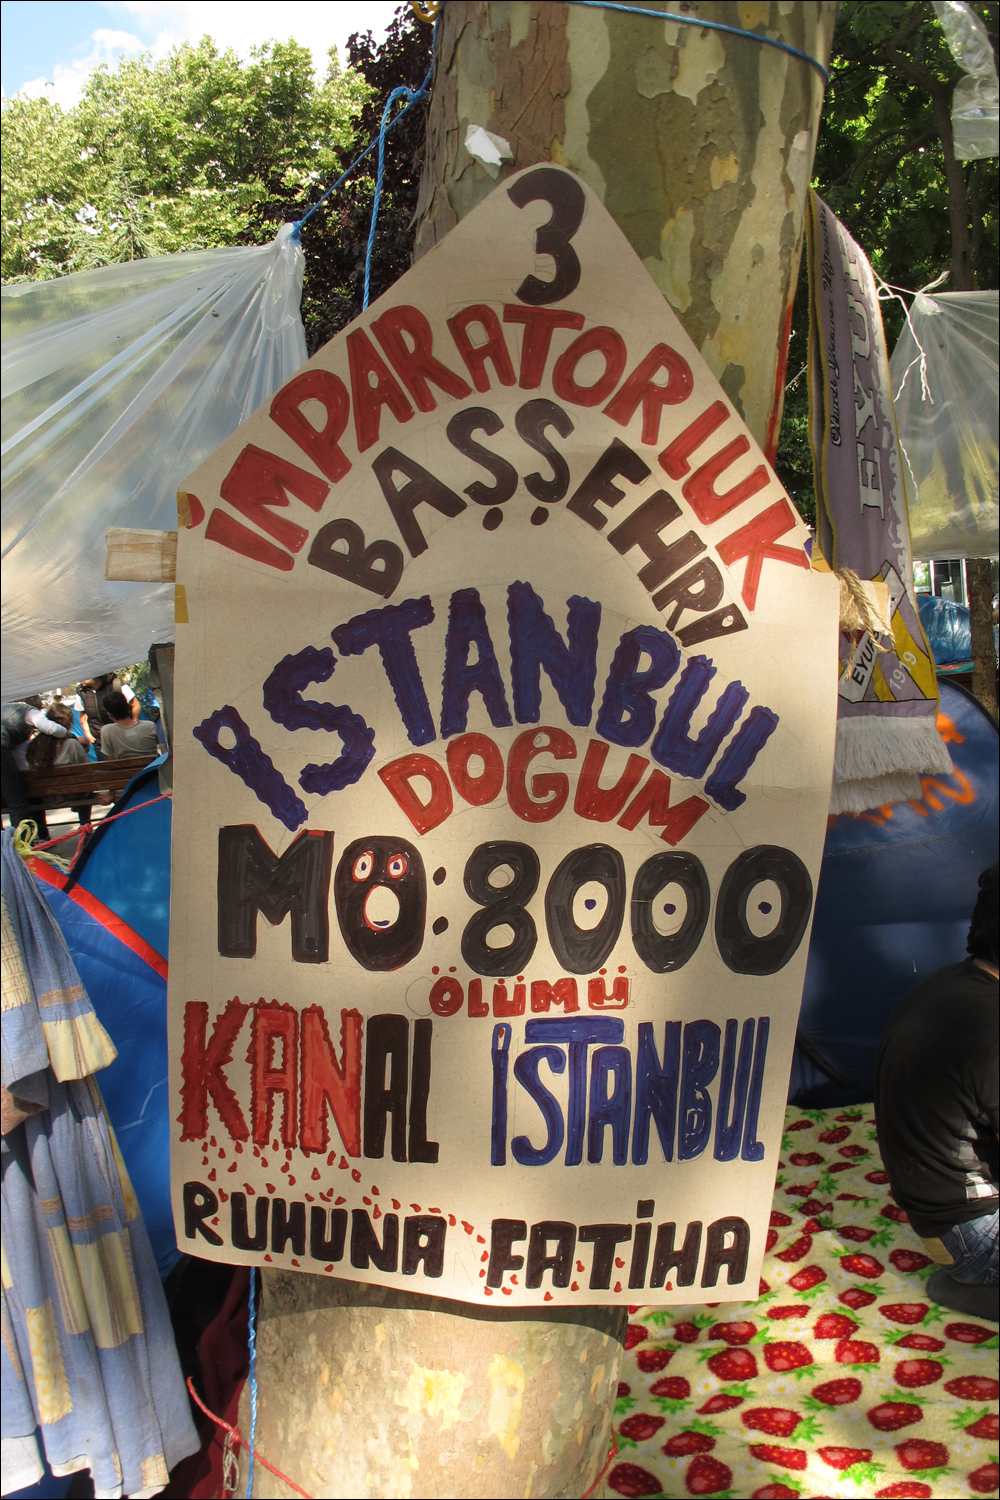 3
İMPARATORLUK
BAŞŞEHRİ
İSTANBUL
DOĞUM
MÖ:8000
ÖLÜMÜ
KANAL İSTANBUL
RUHUNA FATİHA
EYÜP
1919